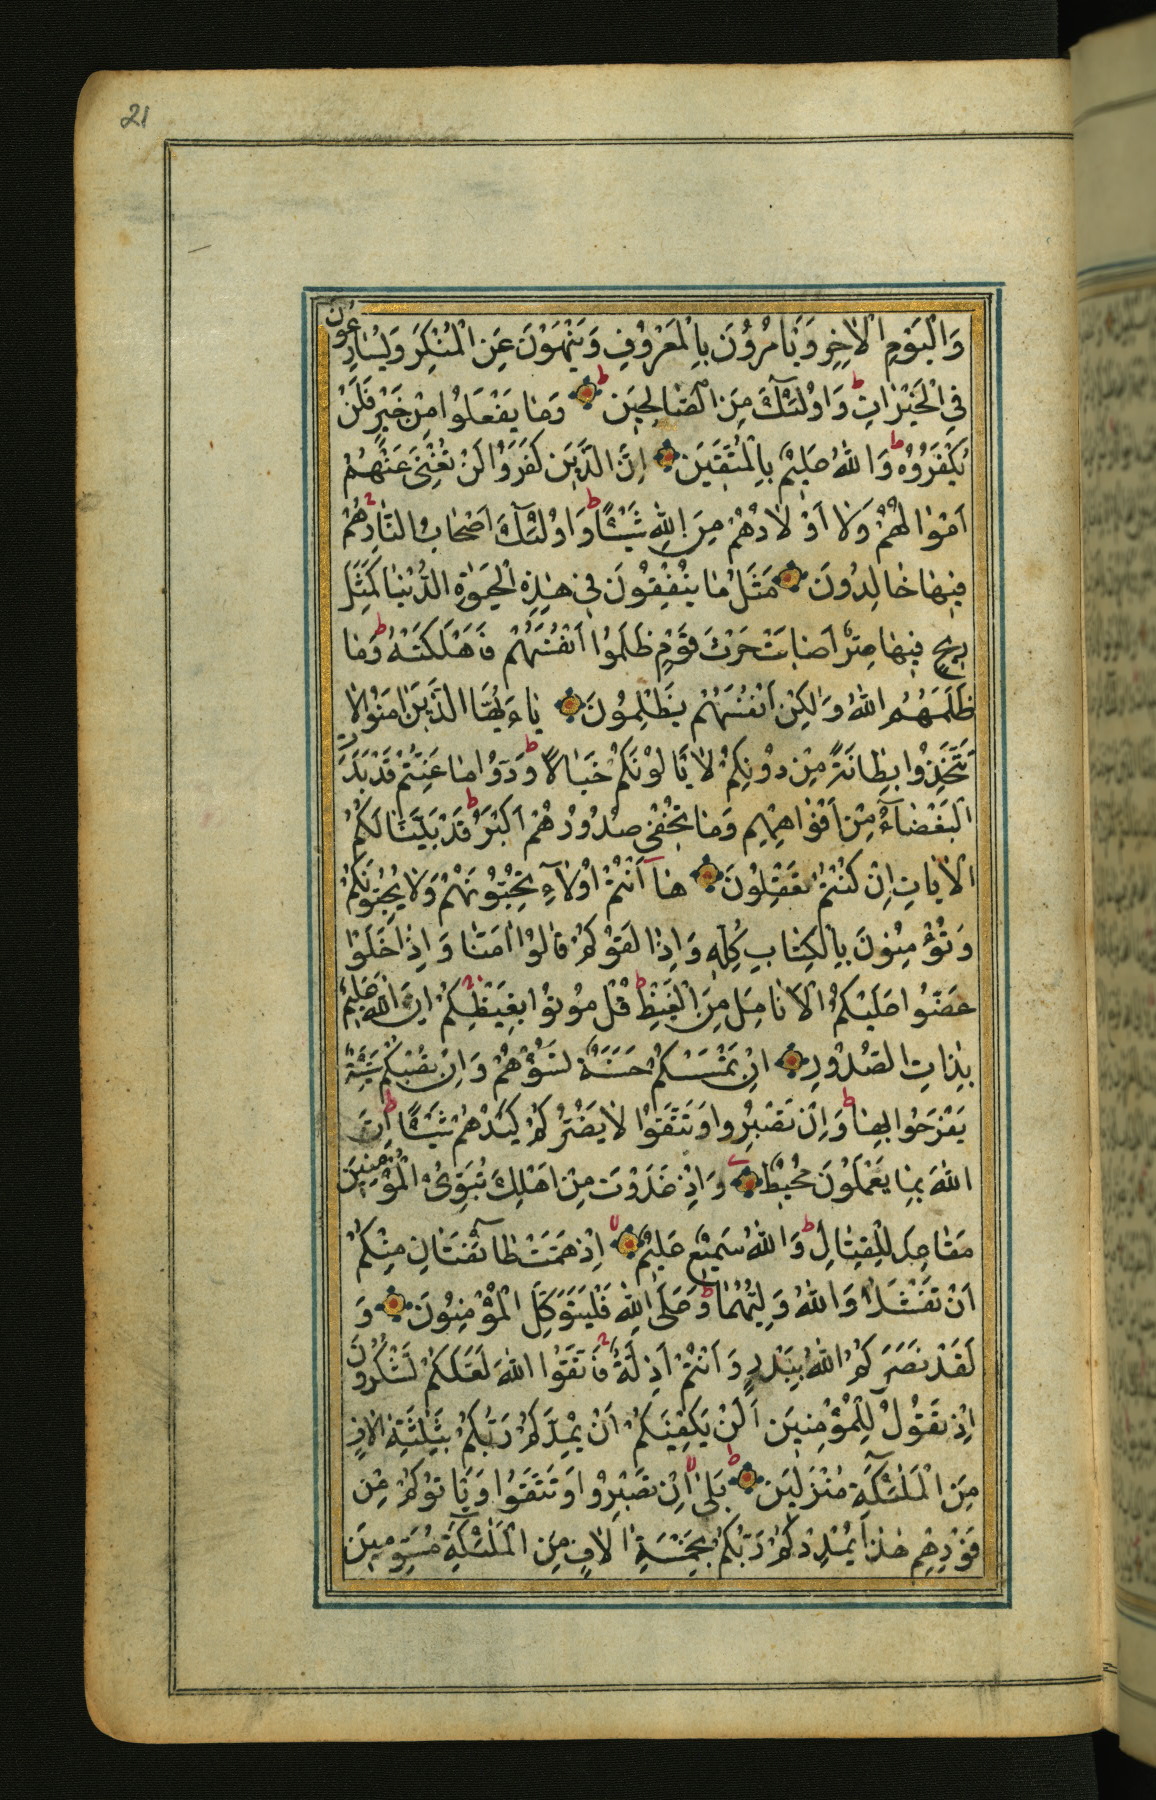 21
وَالْيَوْمِ الْاٰخِرِ وَيَأْمُرُونَ بِالْمَعْرُوفِ وَيَنْهَوْنَ عَنِ الْمُنْكَرِ وَيُسَارِعُونَ
فِي الْخَيْرَاتِ ط وَاُولٰئِكَ مِنَ الصَّالِحِينَ ط وَمَا يَفْعَلُوا مِنْ خَيْرٍ فَلَنْ
يُكْفَرُوهُ ط وَاللّٰهُ عَلِيمٌ بِالْمُتَّقِينَ اِنَّ الَّذِينَ كَفَرُوا لَنْ تُغْنِيَ عَنْهُمْ
اَمْوَالُهُمْ وَلَا اَوْلَادُهُمْ مِنَ اللّٰهِ شَيْئًا ط وَاُولٰئِكَ اَصْحَابُ النَّارِ هُمْ
فِيهَا خَالِدُونَ مَثَلُ مَا يُنْفِقُونَ فِي هٰذِهِ الْحَيٰوةِ الدُّنْيَا كَمَثَلِ
رِيحٍ فِيهَا صِرٌّ اَصَابَتْ حَرْثَ قَوْمٍ ظَلَمُوا اَنْفُسَهُمْ فَاَهْلَكَتْهُ ط وَمَا
ظَلَمَهُمُ اللّٰهُ وَلٰكِنْ اَنْفُسَهُمْ يَظْلِمُونَ يَاءَيُّهَا الَّذِينَ اٰمَنُوا لَا
تَتَّخِذُوا بِطَانَةً مِنْ دُونِكُمْ لَا يَأْلُونَكُمْ خَبَالًا ط وَدُّوا مَا عَنِتُّمْ قَدْ بَدَتِ
الْبَغْضَاءُ مِنْ اَفْوَاهِهِمْ وَمَا تُخْفِي صُدُورُهُمْ اَكْبَرُ ط قَدْ بَيَّنَّا لَكُمُ
الْاٰيَاتِ اِنْ كُنْتُمْ تَعْقِلُونَ هَا اَنْتُمْ اُولَاءِ تُحِبُّونَهُمْ وَلَا يُحِبُّونَكُمْ
وَتُؤْمِنُونَ بِالْكِتَابِ كُلِّهِ وَاِذَا لَقُوكُمْ قَالُوا اٰمَنَّا وَاِذَا خَلَوْا
عَضُّوا عَلَيْكُمُ الْاَنَامِلَ مِنَ الْغَيْظِ ط قُلْ مُوتُوا بِغَيْظِكُمْ اِنَّ اللّٰهَ عَلِيمٌ
بِذَاتِ الصُّدُورِ اِنْ تَمْسَسْكُمْ حَسَنَةٌ تَسُؤْهُمْ وَاِنْ تُصِبْكُمْ سَيِّئَةٌ
يَفْرَحُوا بِهَا ط وَاِنْ تَصْبِرُوا وَتَتَّقُوا لَا يَضُرُّكُمْ كَيْدُهُمْ شَيْئًا ط اِنَّ
اللّٰهَ بِمَا يَعْمَلُونَ مُحِيطٌ وَاِذْ غَدَوْتَ مِنْ اَهْلِكَ تُبَوِّئُ الْمُؤْمِنِينَ
مَقَاعِدَ لِلْقِتَالِ ط وَاللّٰهُ سَمِيعٌ عَلِيمٌ اِذْ هَمَّتْ طَائِفَتَانِ مِنْكُمْ
اَنْ تَفْشَلَا وَاللّٰهُ وَلِيُّهُمَا ط وَعَلَى اللّٰهِ فَلْيَتَوَكَّلِ الْمُؤْمِنُونَ وَ
لَقَدْ نَصَرَكُمُ اللّٰهُ بِبَدْرٍ وَاَنْتُمْ اَذِلَّةٌ فَاتَّقُوا اللّٰهَ لَعَلَّكُمْ تَشْكُرُونَ
اِذْ تَقُولُ لِلْمُؤْمِنِينَ اَلَنْ يَكْفِيَكُمْ اَنْ يُمِدَّكُمْ رَبُّكُمْ بِثَلٰثَةِ اٰلَافٍ
مِنَ الْمَلٰئِكَةِ مُنْزَلِينَ ط بَلٰى اِنْ تَصْبِرُوا وَتَتَّقُوا وَيَأْتُوكُمْ مِنْ
فَوْرِهِمْ هٰذَا يُمْدِدْكُمْ رَبُّكُمْ بِخَمْسَةِ اٰلَافٍ مِنَ الْمَلٰئِكَةِ مُسَوِّمِينَ